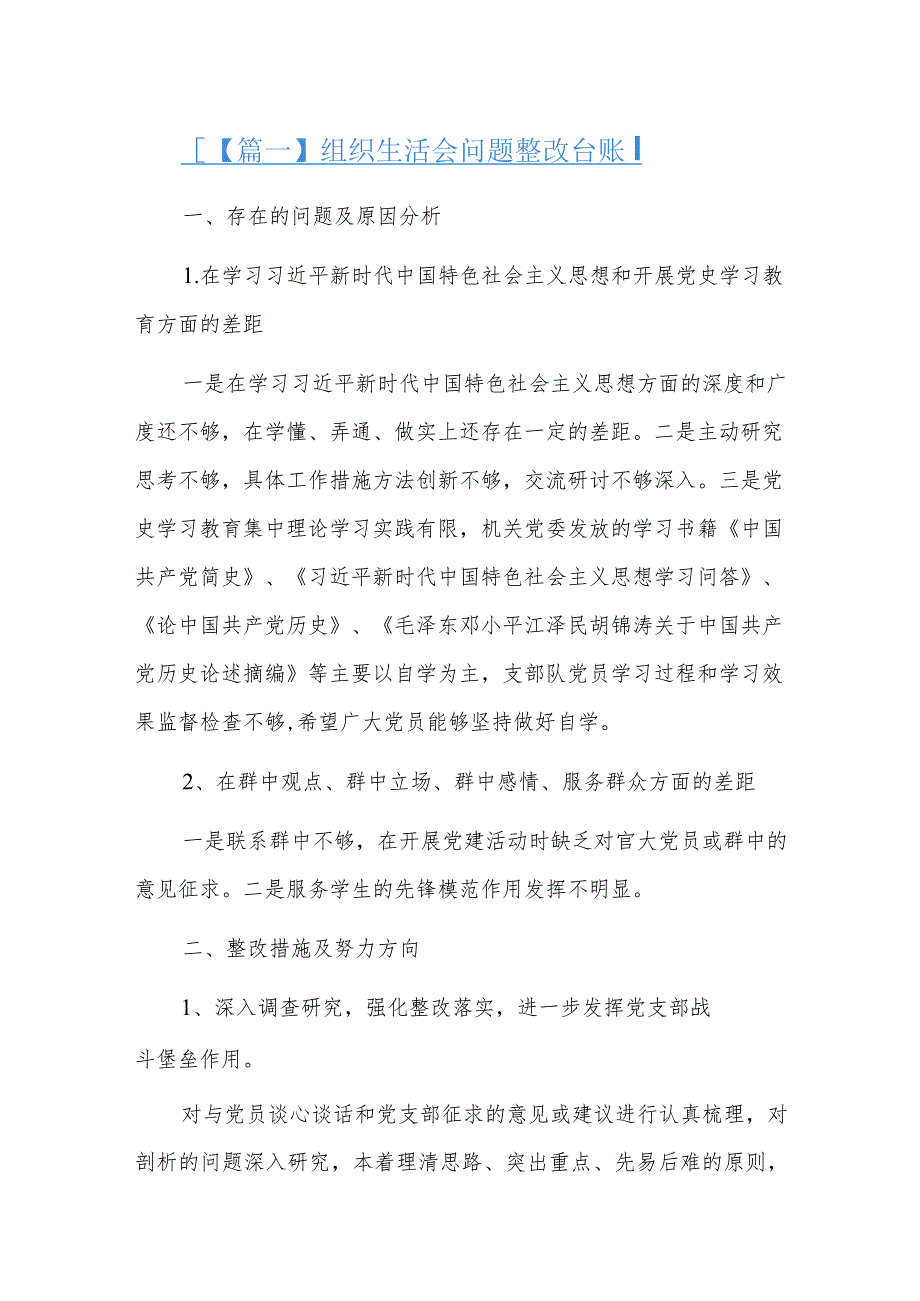 [【篇一】组织生活会问题整改台账
一、存在的问题及原因分析
1.在学习习近平新时代中国特色社会主义思想和开展党史学习教
育方面的差距
一是在学习习近平新时代中国特色社会主义思想方面的深度和广
度还不够，在学懂、弄通、做实上还存在一定的差距。二是主动研究
思考不够，具体工作措施方法创新不够，交流研讨不够深入。三是党
史学习教育集中理论学习实践有限，机关党委发放的学习书籍《中国
共产党简史》、《习近平新时代中国特色社会主义思想学习问答》、
《论中国共产党历史》、《毛泽东邓小平江泽民胡锦涛关于中国共产
党历史论述摘编》等主要以自学为主，支部队党员学习过程和学习效
果监督检查不够,希望广大党员能够坚持做好自学。
2、在群中观点、群中立场、群中感情、服务群众方面的差距
一是联系群中不够，在开展党建活动时缺乏对官大党员或群中的
意见征求。二是服务学生的先锋模范作用发挥不明显。
二、整改措施及努力方向
1、深入调查研究，强化整改落实，进一步发挥党支部战
斗堡垒作用。
对与党员谈心谈话和党支部征求的意见或建议进行认真梳理，对
剖析的问题深入研究，本着理清思路、突出重点、先易后难的原则，